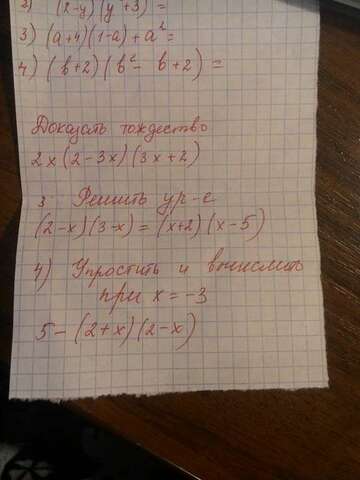 2) (2-y)(y+3) =
3) (a+4)(1-a)+a² =
4) (b+2)(b²-b+2) =
Доказать тождество
2x(2-3x)(3x+2)
3 Решить ур-е
(2-x)(3-x) = (x+2)(x-5)
4) Упростить и вычислить
при x = -3
5-(2+x)(2-x)